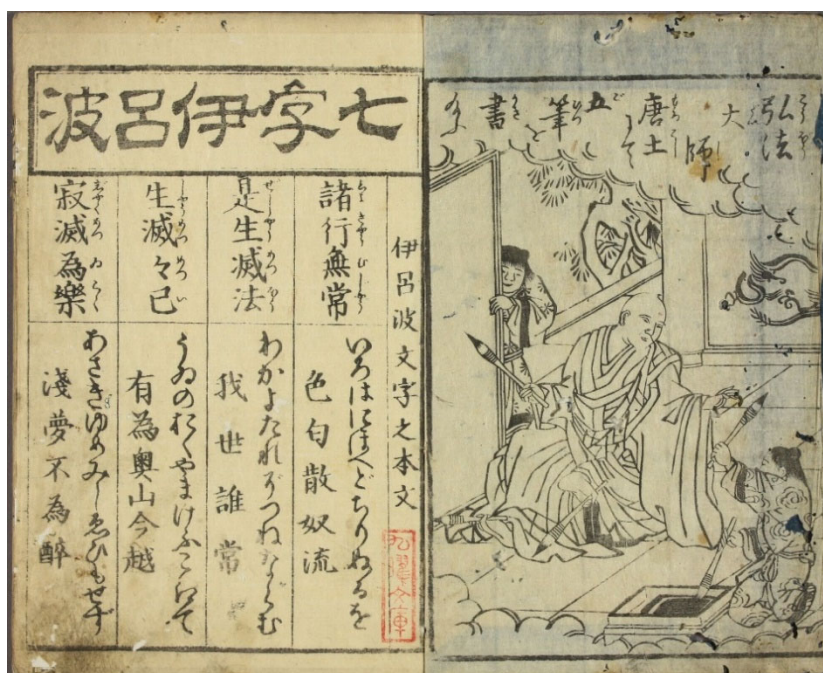 弘法
大師
唐土
にて
五
筆
を
書
七字伊呂波
伊呂波文字之本文
諸行無常
いろはにほへどちりぬるを
色匂散奴流
是生滅法
わかよたれぞつねならむ
我世誰常
生滅々已
うゐのおくやまけふこえて
有為奥山今越
寂滅為樂
あさきゆめみしゑひもせず
淺夢不為醉